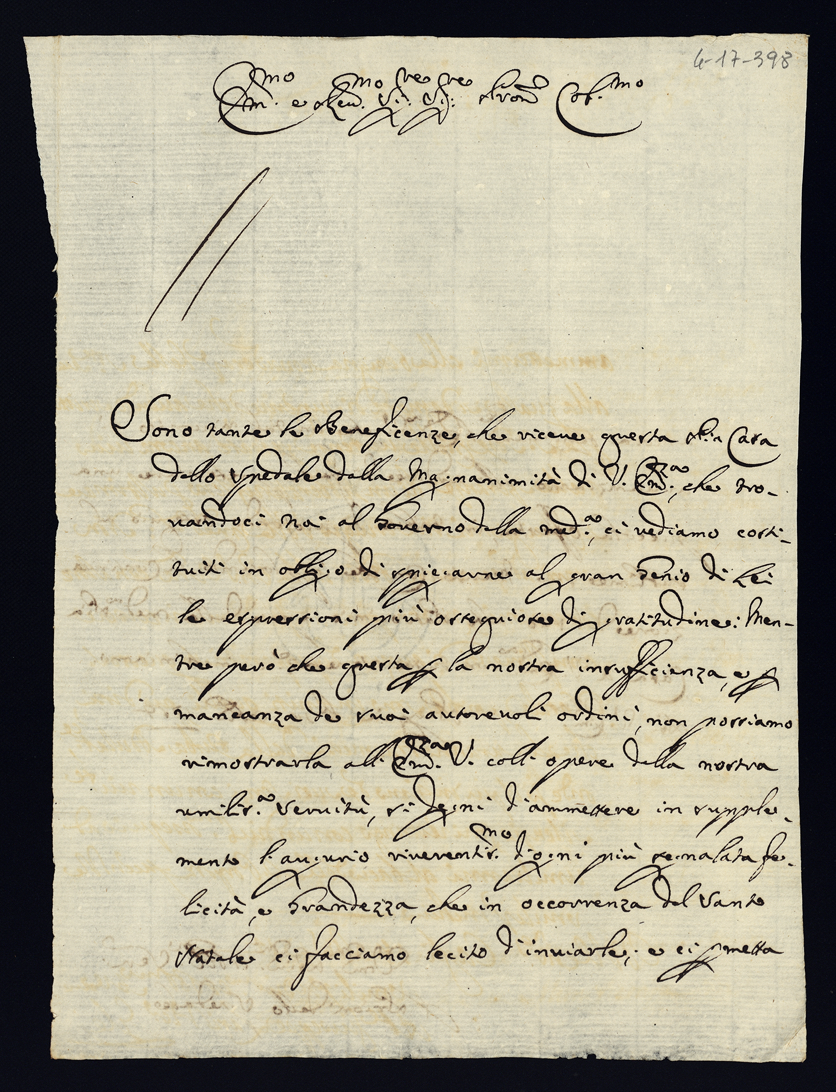 4-17-398
Em.mo e Rev.mo Sig.re Sig.re Pron Col.mo
Sono tante le Beneficenze, che riceve questa Pia Casa
dello Spedale dalla Magnanimità di V. Em.za, che tro-
vandoci noi al Governo della med.a, ci vediamo costi-
tuiti in obligo di spiegarne al gran Genio di Lei
le espressioni più ossequiose di gratitudine: Men-
tre però che questa p la nostra insufficienza, e p
mancanza de suoi autorevoli ordini, non possiamo
rimostrarla all'Em.za V. coll'opere della nostra
umilis.a Servitù, si degni d'ammettere in supple-
mento l'augurio riverentis.mo d'ogni più segnalata fe-
licità, e Grandezza, che in occorrenza del Santo
Natale ci facciamo lecito d'inviarle; e ci pmetta